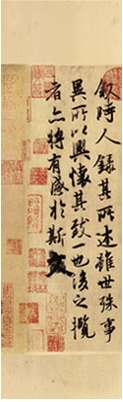 叙時人録其所述雖世殊事
異所以興懷其致一也後之攬
者亦将有感於斯文